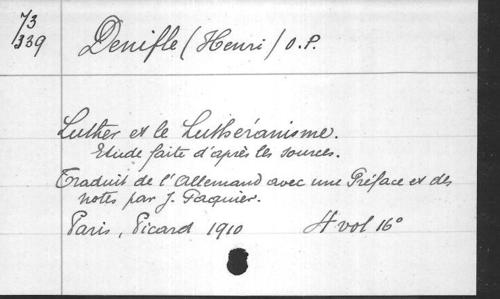 73
339
Denifle (Henri) O.P.
Luther et le Luthéranisme.
Etude faite d'après les sources.
Traduit de l'Allemand avec une Préface et des
notes par J. Paquier.
Paris, Picard 1910 4 vol 16°